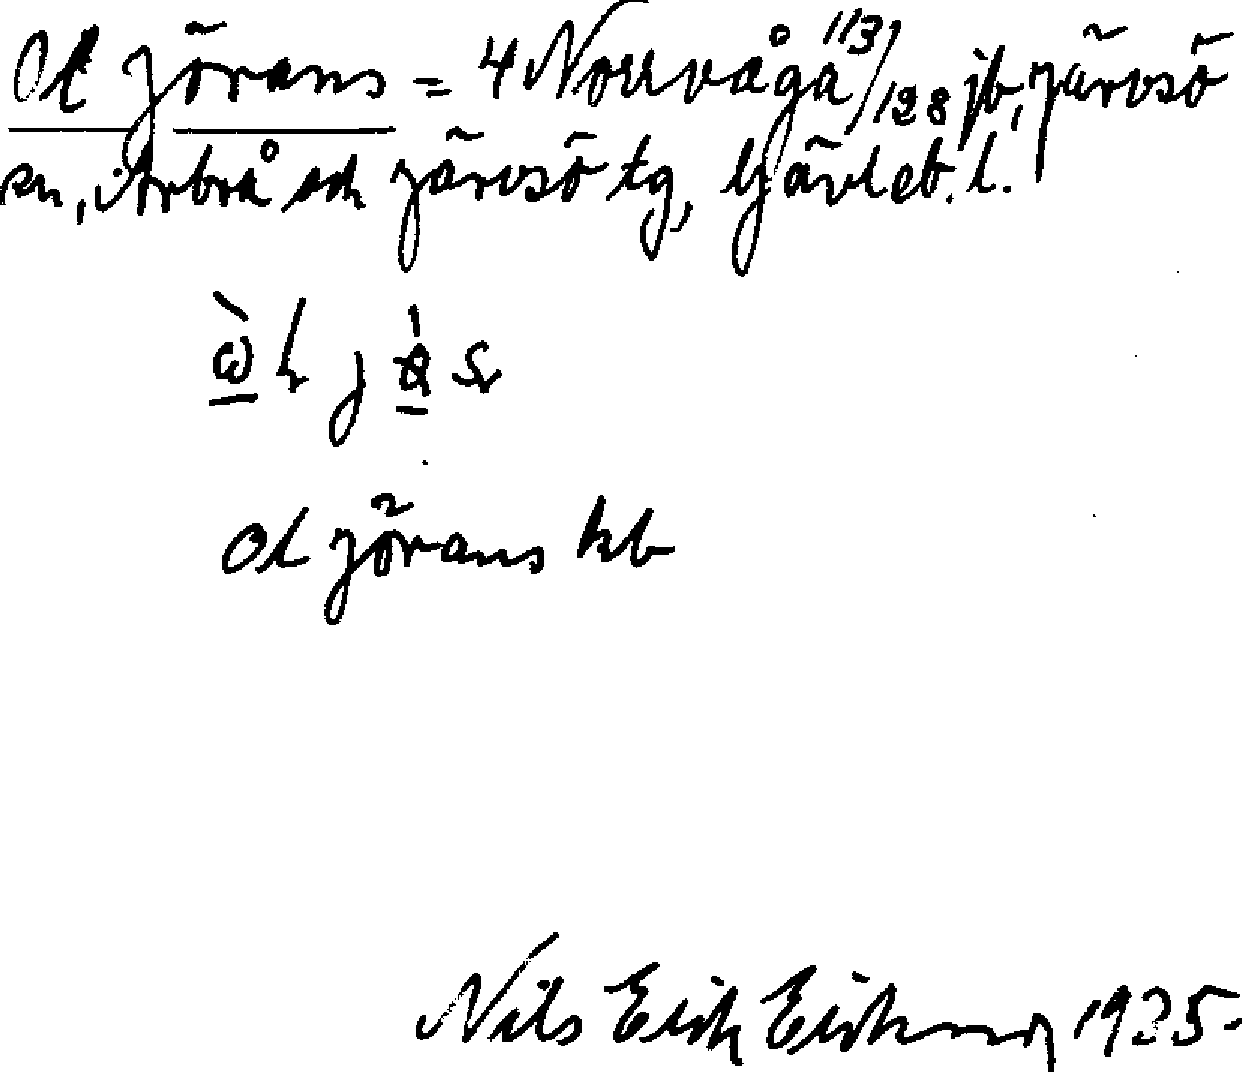 Ol Jörans = 4 Norrvåga 113/128 jb, Järvsö
sn, Arbrå och Järvsö tg, Gävleb. l.
Ol Jörans kb
Nils Erik Eriksson 1925.